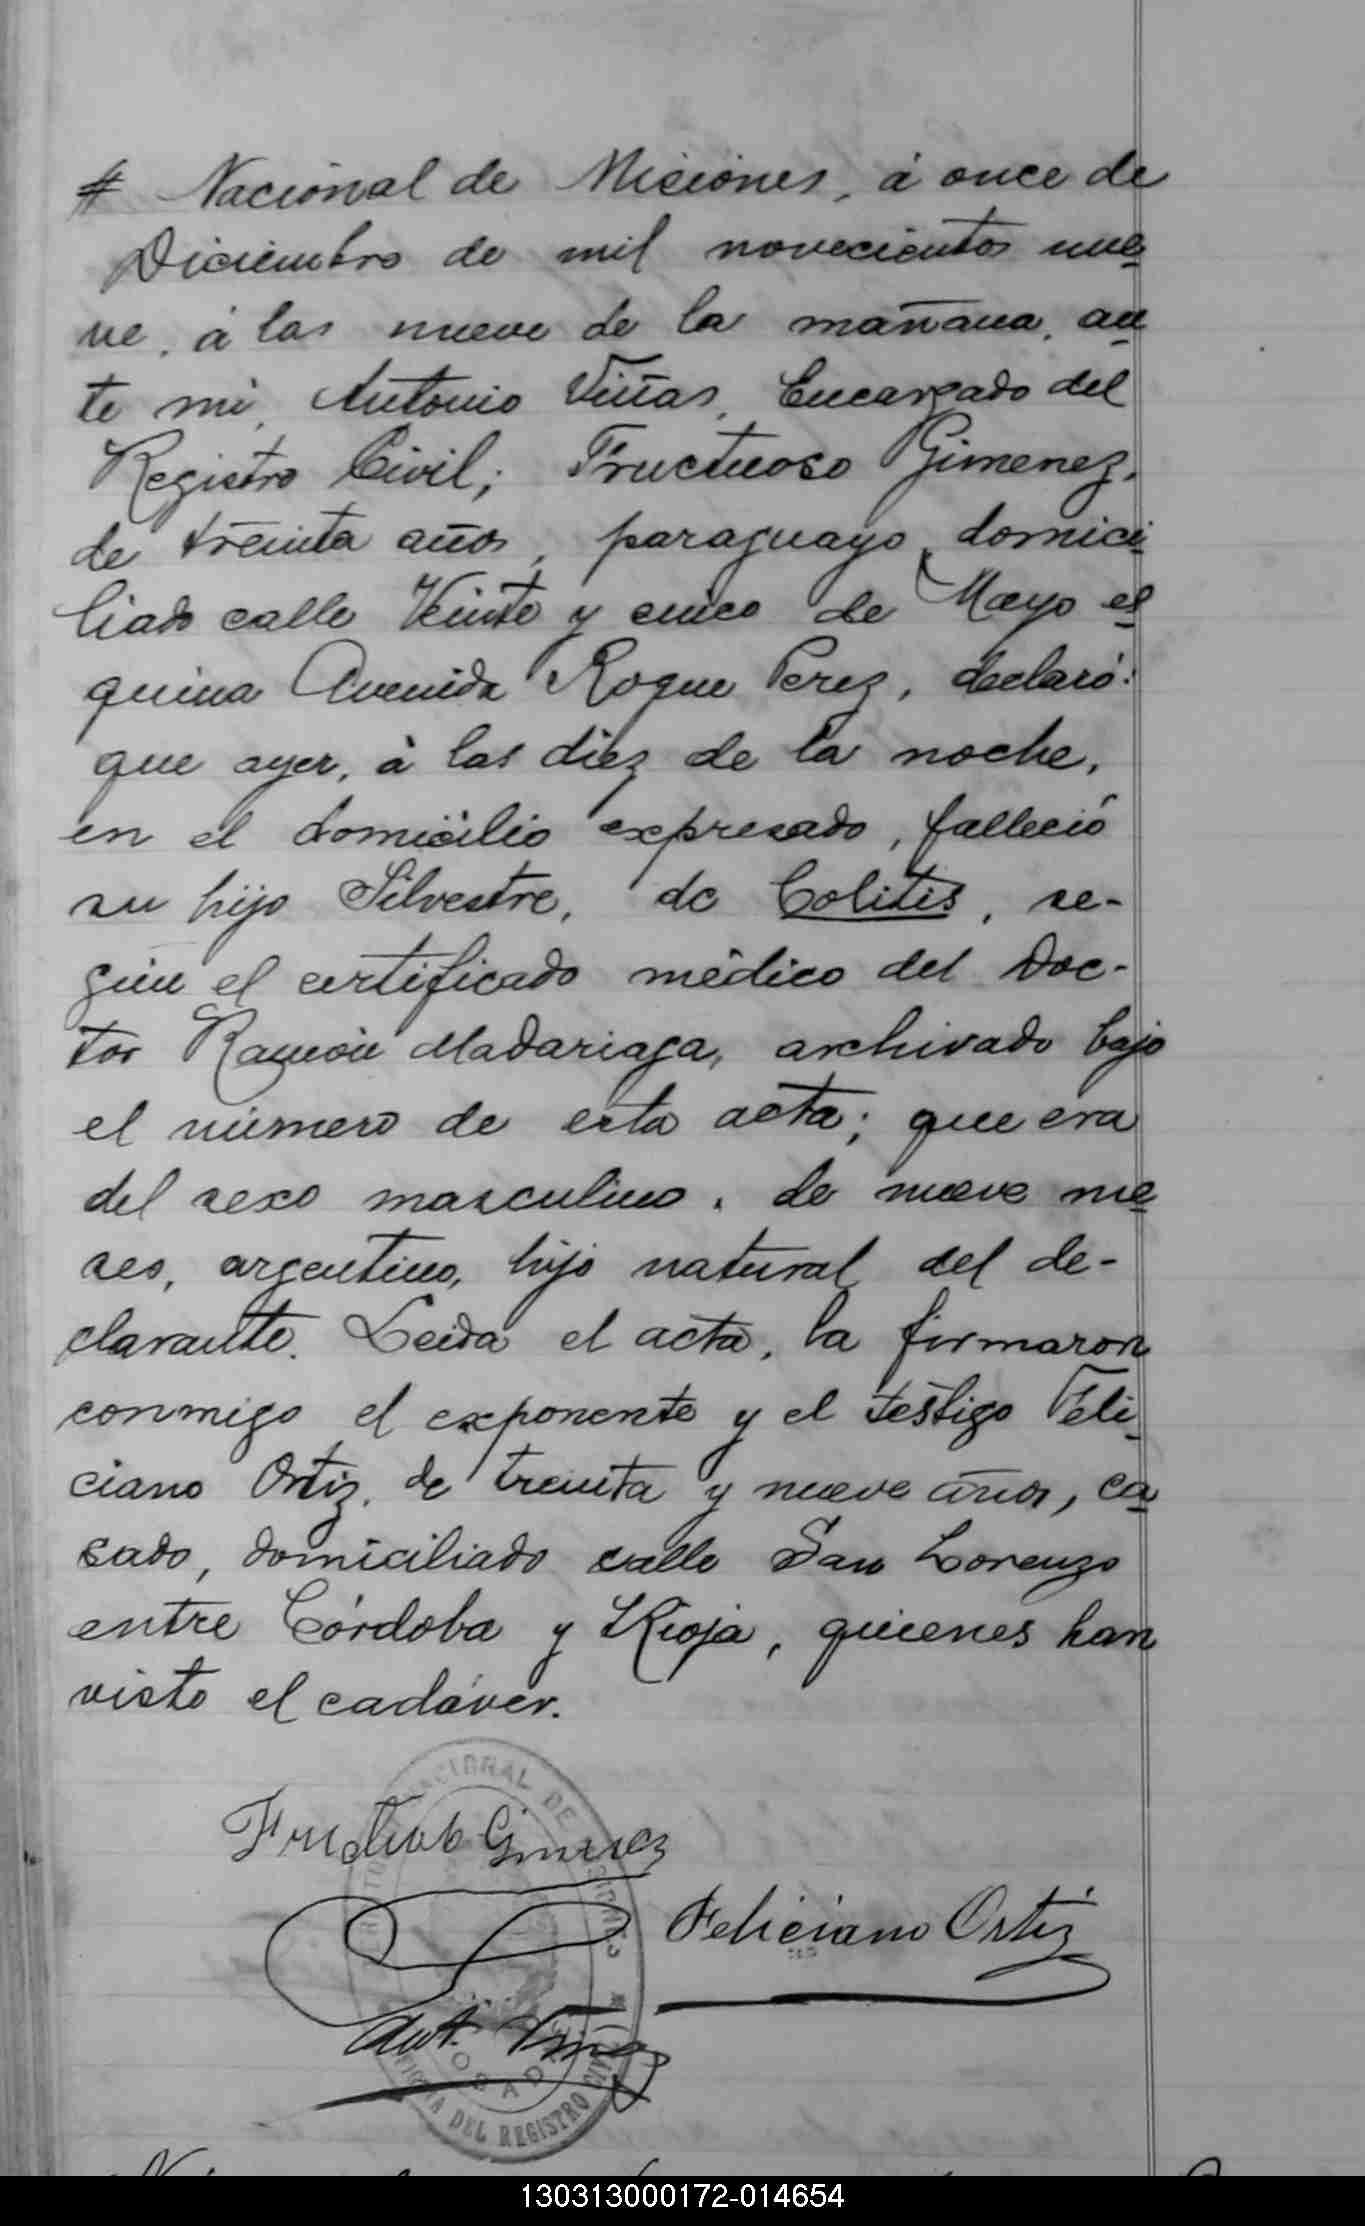 # Nacional de Misiones, á once de
Diciembre de mil novecientos nue
ve, á las nueve de la mañana, an
te mi, Antonio Viñas, Encargado del
Registro Civil; Fructuoso Gimenez,
de treinta años, paraguayo, domici
liado calle Veinte y cinco de Mayo es
quina Avenida Roque Perez, declaró:
que ayer, á las diez de la noche,
en el domicilio expresado, falleció
su hijo Silvestre, de Colitis, se-
gún el certificado médico del Doc-
tor Ramón Madariaga, archivado bajo
el número de esta acta; que era
del sexo masculino, de nueve me
ses, argentino, hijo natural del de-
clarante. Leida el acta, la firmaron
conmigo el exponente y el testigo Feli
ciano Ortiz, de treinta y nueve años, ca
sado, domiciliado calle San Lorenzo
entre Córdoba y Rioja, quienes han
visto el cadáver.
NACIONAL DE MISIONES
Fructuoso Gimenez
Feliciano Ortiz
Ant. Viñas
POSADAS
OFICINA DEL REGISTRO CIVIL
130313000172-014654